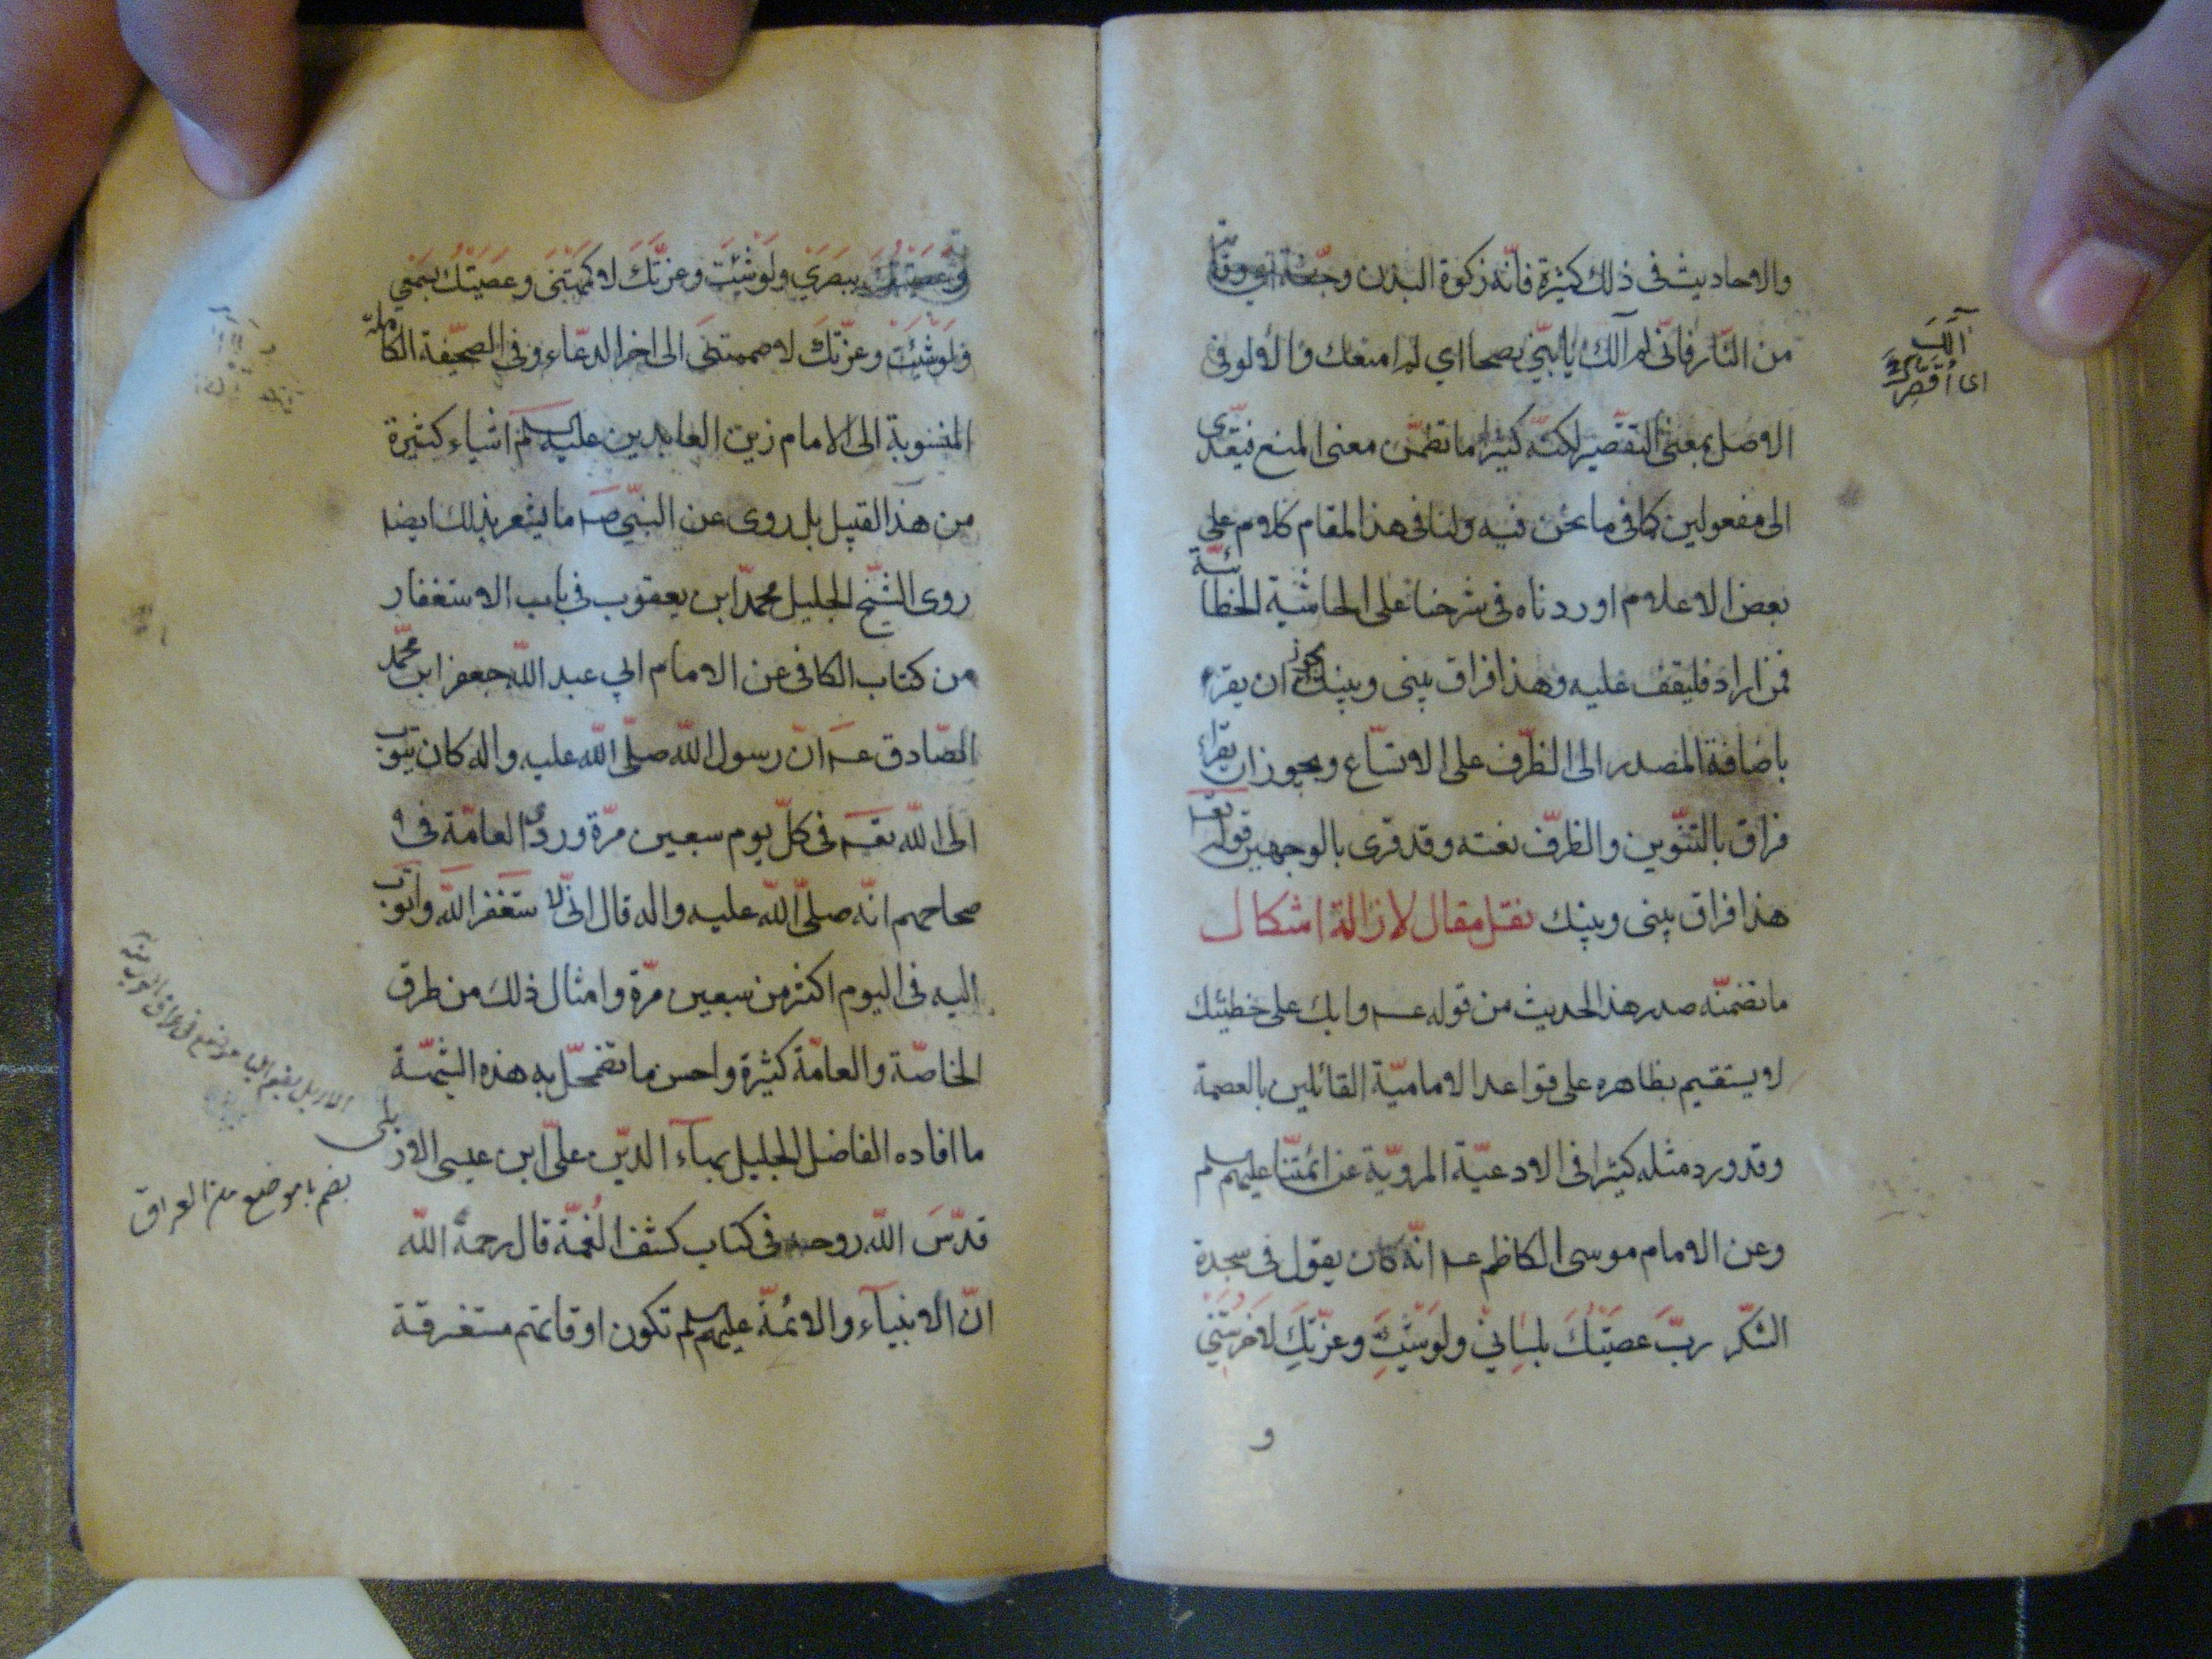 والاحاديث فى ذلك كثيرة فانّه زكوة البدن وجُنّة اى وقاية
من النّار فانّى لم آلك يا بنىّ نصحا اى لم امنعك والالو فى
الاصل بمعنى التقصير لكنّه كثيرا ما تضمّن معنى المنع فيتعدّى
الى مفعولين كما فى ما نحن فيه ولنا فى هذا المقام كلام على
بعض الاعلام اوردناه فى شرحنا على الحاشية الخطائيّة
فمن اراد فليقف عليه وهذا فراق بينى وبينك يجوز ان يقرء
باضافة المصدر الى الظرف على الاتّساع ويجوز ان يقراء
فراق بالتنوين والظرف نعته وقد قرى بالوجهين قوله تعـ
هذا فراق بينى وبينك نقل مقال لازالة اشكال
ما تضمنّه صدر هذا الحديث من قوله عـ وابك على خطيئتك
لا يستقيم بظاهره على قواعد الاماميّة القائلين بالعصمة
وقد ورد مثله كثيرا فى الادعيّة المرويّة عن ائمّتنا عليهم سلم
وعن الامام موسى الكاظم عـ انّه كان يقول فى سجدة
الشكر ربّ عصيتك بلسانى ولو شئت وعزّتك لاخرستنى
و
آلك
اى اُقَصِّر
وعصيتك ببصرى ولو شئت وعزتّك لاكمهتنى وعصيتك بسمعى
ولو شئت وعزّتك لاصممتنى الى اخر الدعّاء وفى الصحيفة الكاملة
المنسوبة الى الامام زين العابدين عليه سلم اشياء كثيرة
من هذا القبيل بل روى عن النبىّ صـ ما يشعر بذلك ايضا
روى الشيّخ الجليل محمدّ ابن يعقوب فى باب الاستغفار
من كتاب الكافى عن الامام ابى عبد اللّه جعفر ابن محمّد
الصّادق عـ انّ رسول اللّه صلّى اللّه عليه واله كان يتوب
الى اللّه تعـ فى كلّ يوم سبعين مرّة وروى العامّة فى
صحاحهم انّه صلّى اللّه عليه واله قال انّى لاستغفر اللّه واتوب
اليه فى اليوم اكثر من سبعين مرّة وامثال ذلك من طرق
الخاصّة والعامّة كثيرة واحسن ما تضمحلّ به هذه الشبهة
ما افاده الفاضل الجليل بهآء الدّين علىّ ابن عيسى الاربلى
قدّس اللّه روحه فى كتاب كشف الغُمّة قال رحمه اللّه
انّ الانبيآء والائمّة عليهم سلم تكون اوقاتهم مستغرقة
بضم با موضع من العراق